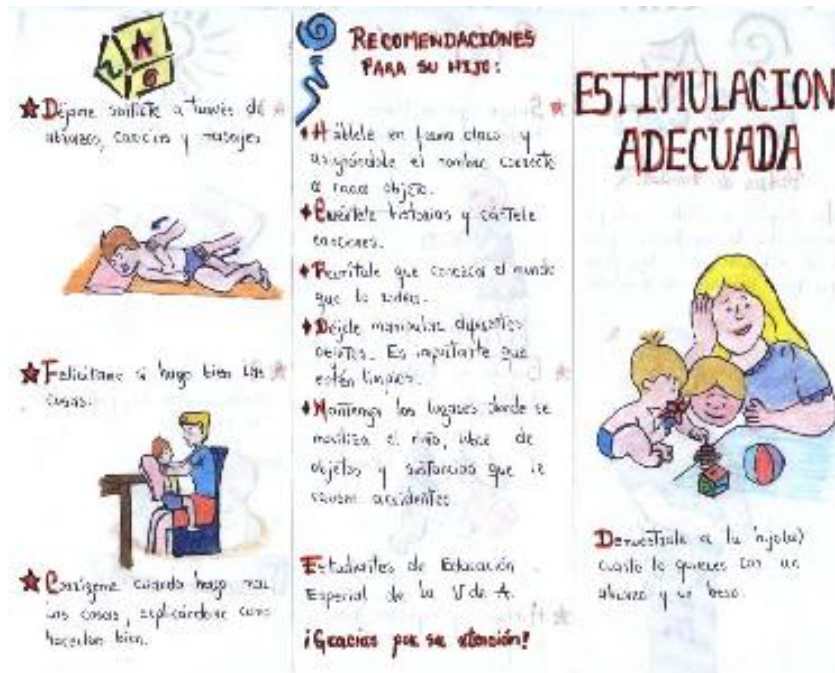 Déjame sentirte a través de
abrazos, caricias y masajes
Felicítame si hago bien las
cosas.
Corrígeme cuando hago mal
las cosas, explicándome como
hacerlas bien.
RECOMENDACIONES
PARA SU HIJO:
Háblele en forma clara y
asignándole el nombre correcto
a cada objeto.
Cuéntele historias y cántele
canciones.
Permítale que conozca el mundo
que lo rodea.
Déjele manipular diferentes
objetos. Es importante que
estén limpios.
Mantenga los lugares donde se
moviliza el niño, libre de
objetos y sustancias que le
causen accidentes.
Estudiantes de Educación
Especial de la U de A.
¡Gracias por su atención!
ESTIMULACION
ADECUADA
Demuéstrale a tu hijo(a)
cuanto lo quieres con un
abrazo y un beso.